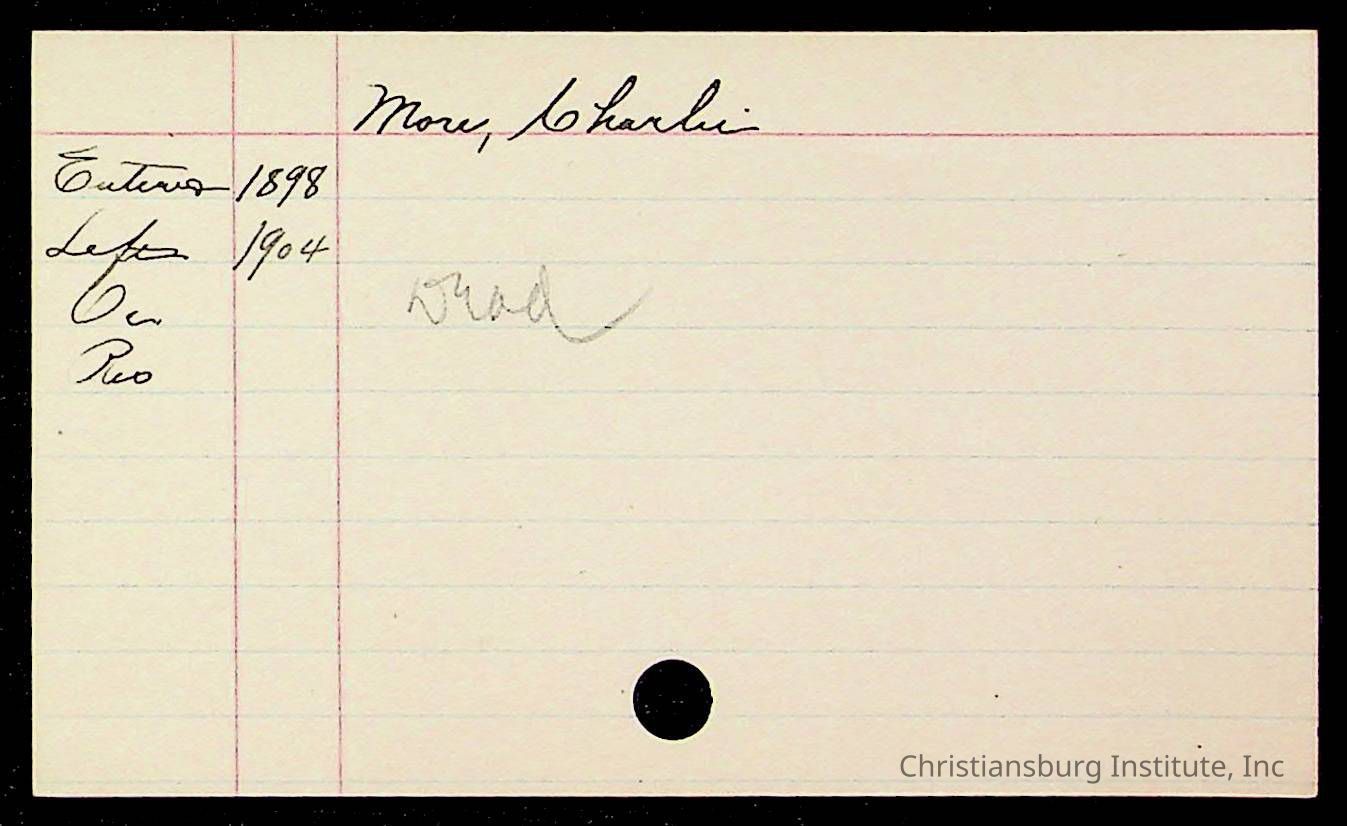 More, Charlie
Entered 1898
Left 1904
Oc
Dead
Res
Christiansburg Institute, Inc